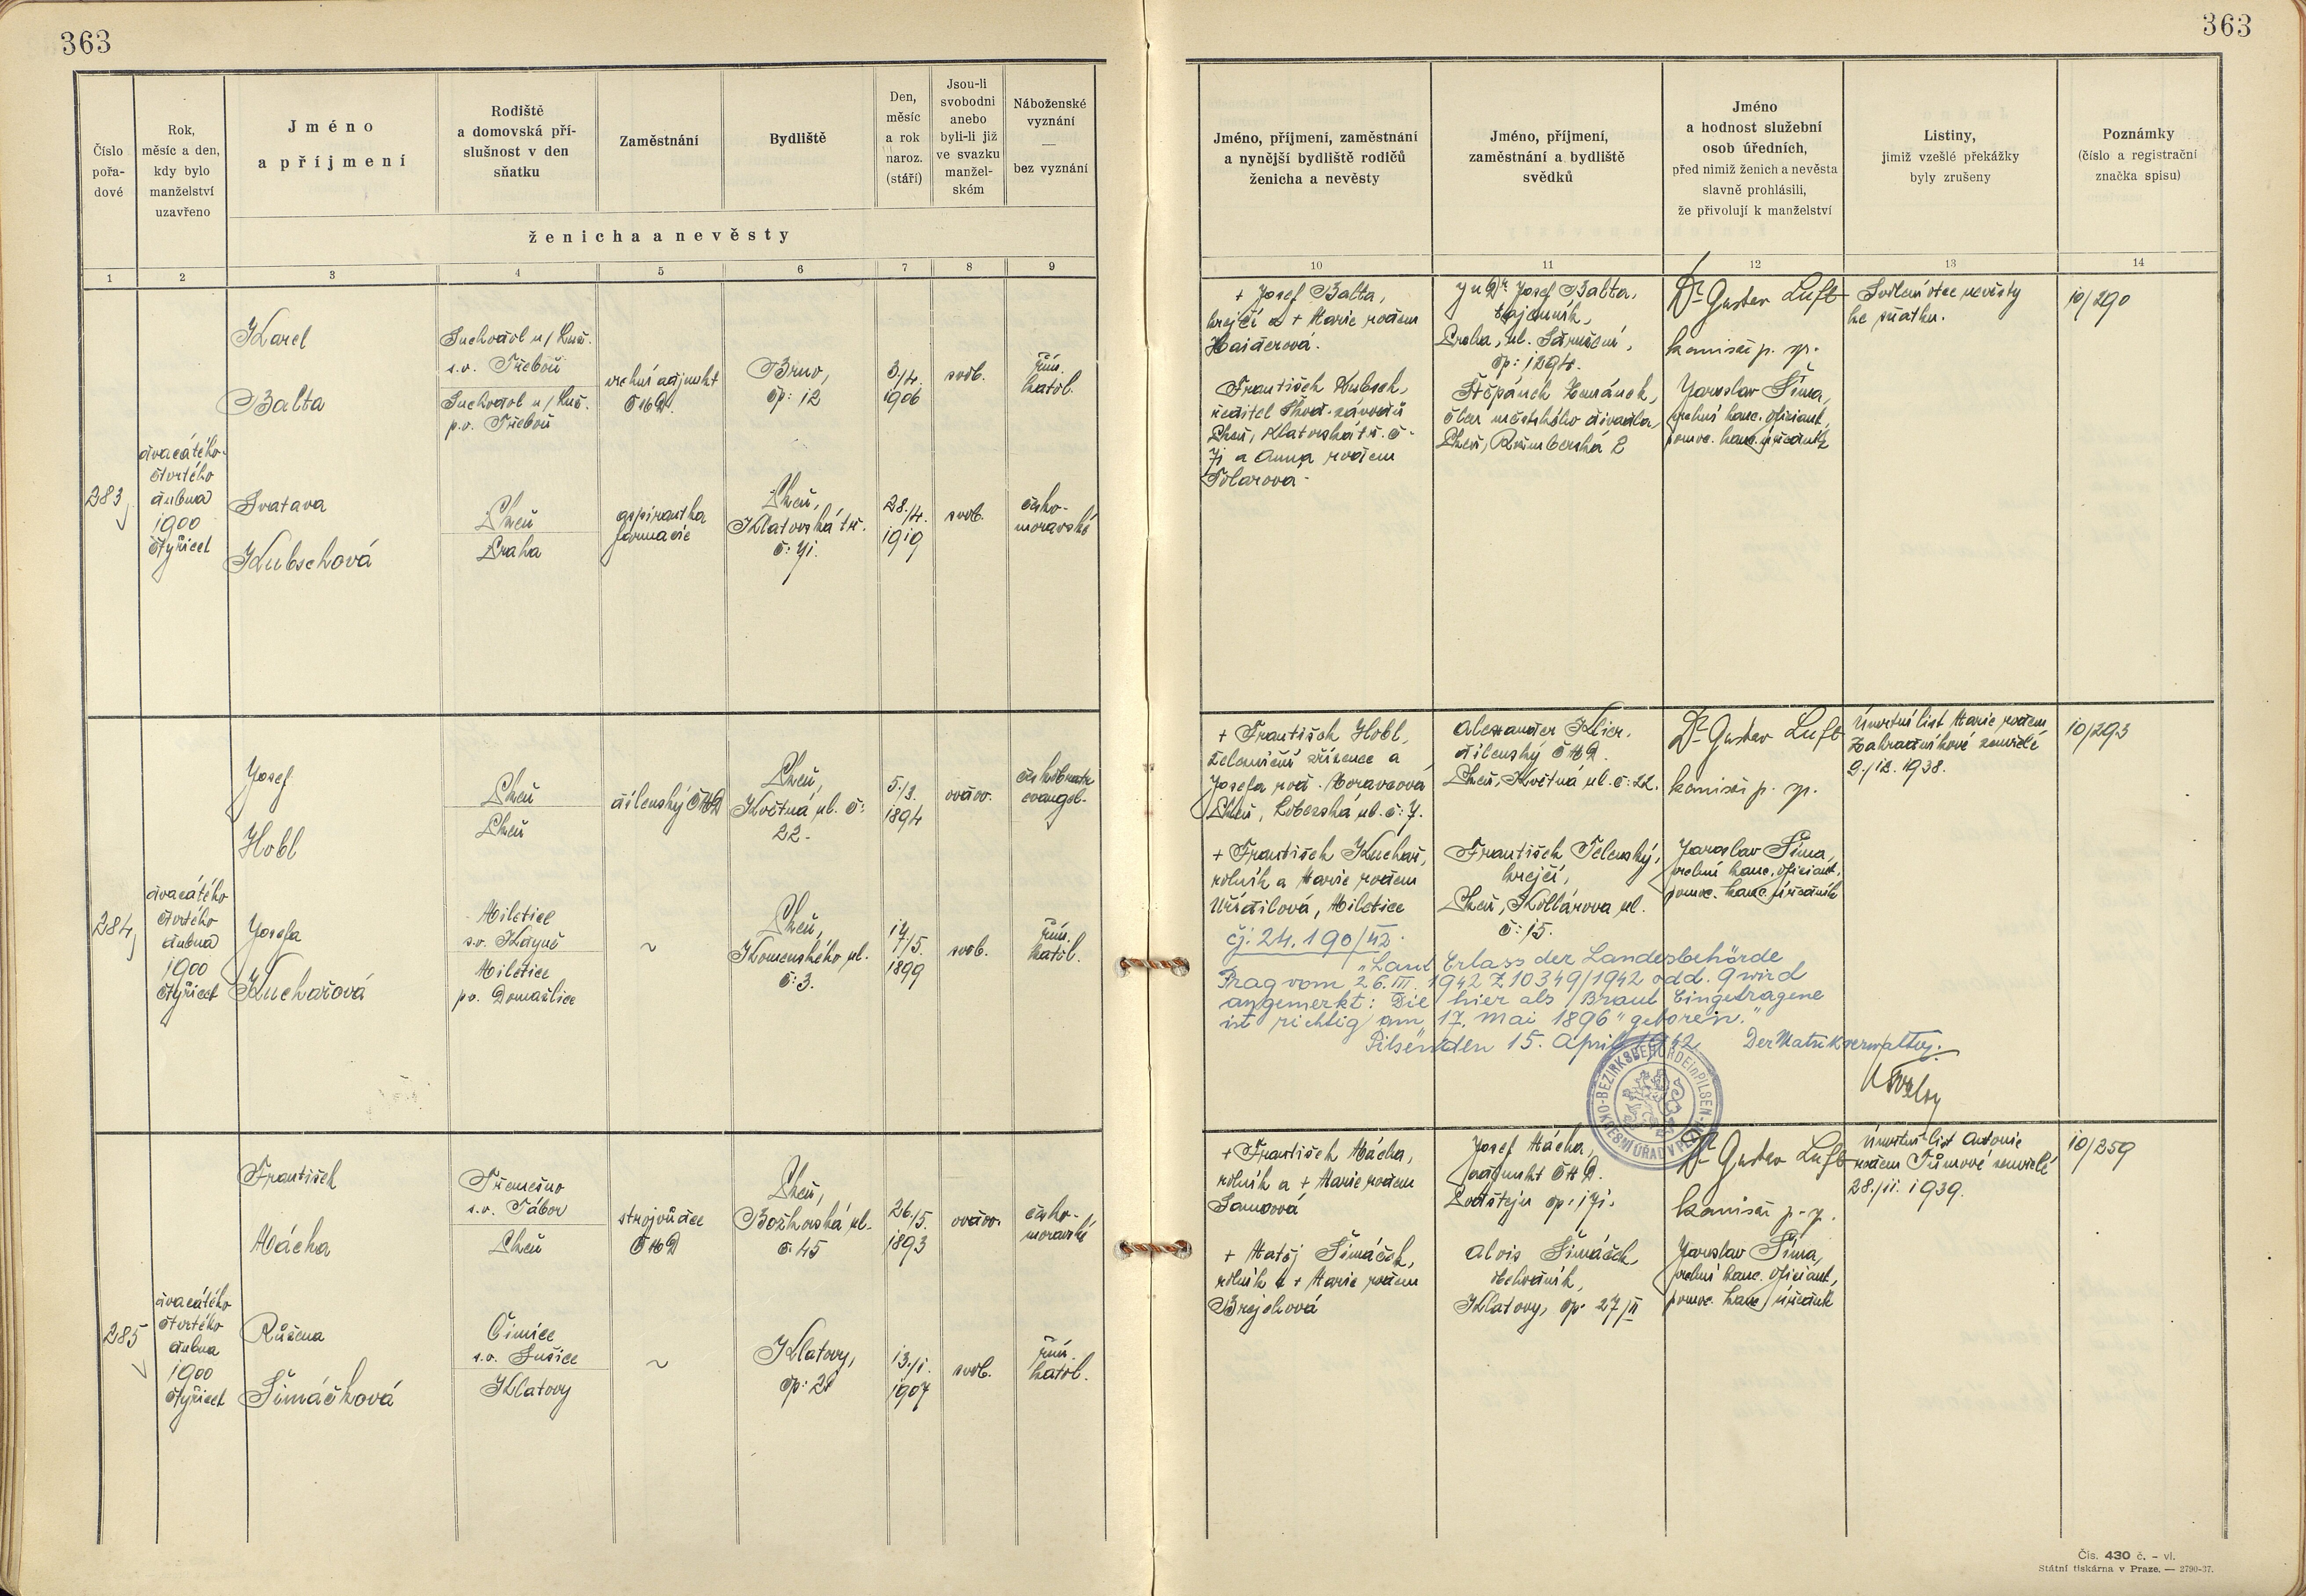 363
363
Číslo
pořa-
dové
Rok,
měsíc a den,
kdy bylo
manželství
uzavřeno
Jméno
a příjmení
Rodiště
a domovská pří-
slušnost v den
sňatku
Zaměstnání
Bydliště
Den,
měsíc
a rok
naroz.
(stáří)
Jsou-li
svobodni
anebo
byli-li již
ve svazku
manžel-
ském
Náboženské
vyznání
—
bez vyznání
ženicha a nevěsty
Jméno, příjmení, zaměstnání
a nynější bydliště rodičů
ženicha a nevěsty
Jméno, příjmení,
zaměstnání a bydliště
svědků
Jméno
a hodnost služební
osob úředních,
před nimiž ženich a nevěsta
slavně prohlásili,
že přivolují k manželství
Listiny,
jimiž vzešlé překážky
byly zrušeny
Poznámky
(číslo a registrační
značka spisu)
1 2 3 4 5 6 7 8 9
10 11 12 13 14
283
dvacátého
čtvrtého
dubna
1900
čtyřicet
Karel
Balta
Suchdol n/Luž.
s.o. Třeboň
Suchdol n/Luž.
p.o. Třeboň
vrchní adjunkt
ČMD.
Brno,
čp: 12
3./4.
1906
svob.
řím.
katol.
Svatava
Kubschová
Plzeň
Praha
aspirantka
farmacie
Plzeň,
Klatovská tř.
č: 71.
28./4.
1919
svob.
česko-
moravské
+ Josef Balta,
krejčí a + Marie rodem
Haiderová.
František Kubsch,
ředitel Škod. závodů
Plzeň, Klatovská tř. č.
71 a Anna rodem
Tolarova.
JuDr. Josef Balta,
tajemník,
Praha, ul.
čp: 1294.
Štěpánek Zemánek,
člen městského divadla,
Plzeň, Rožmberská 2
Dr Gustav Luft
komisař p. sp.
Jaroslav Šíma,
vrchní kanc. oficiant,
pomoc. kanc. úředník
Svolení otce nevěsty
ke sňatku.
10/290
284
dvacátého
čtvrtého
dubna
1900
čtyřicet
Josef
Hobl
Plzeň
Plzeň
dílenský ČMD
Plzeň,
Květná ul. č:
22.
5./3.
1894
ovdov.
českobratr.
evangel.
Josefa
Kuchařová
Miletice
s.o. Kdyně
Miletice
po. Domažlice
~
Plzeň,
Komenského ul.
č: 3.
17
7./5.
1899
svob.
řím.
katol.
+ František Hobl,
železniční zřízenec a
Josefa rod. Moravcová
Plzeň, Lobezská ul. č: 7.
+ František Kuchař,
rolník a Marie rodem
Uřídilová, Miletice
Alexander Klier,
dílenský ČMD.
Plzeň, Květná ul. č: 22.
František Telenský,
krejčí,
Plzeň, Kollárova ul.
č: 15.
Dr Gustav Luft
komisař p. sp.
Jaroslav Šíma,
vrchní kanc. oficiant,
pomoc. kanc. úředník
Úmrtní list Marie rodem
Zahradníkové zemřelé
9./12. 1938.
10/293
čj: 24.190/42.
"Laut Erlass der Landesbehörde
Prag vom 26.III.1942 Z 10349/1942 odd. 9 wird
angemerkt: Die hier als Braut Eingetragene
ist richtig am "17. Mai 1896" geboren."
Pilsen, den 15. April 1942. Der Matrikverwalter:
BEZIRKSBEHÖRDE in PILSEN
OKRESNÍ ÚŘAD V PLZNI
285
dvacátého
čtvrtého
dubna
1900
čtyřicet
František
Mácha
Třemešno
s.o. Tábor
Plzeň
strojvůdce
ČMD
Plzeň,
Božkovská ul.
č: 45
26./5.
1893
ovdov.
česko-
moravské
Růžena
Šimáčková
Čimice
s.o. Sušice
Klatovy
~
Klatovy,
čp: 27
13./1.
1907
svob.
řím.
katol.
+ František Mácha,
rolník a + Marie rodem
Samcová
+ Matěj Šimáček,
rolník a + Marie rodem
Brejchová
Josef Mácha,
adjunkt ČMD.
čp: 171.
Alois Šimáček,
obchodník,
Klatovy, čp. 27/II
Dr Gustav Luft
komisař p. sp.
Jaroslav Šíma,
vrchní kanc. oficiant,
pomoc. kanc. úředník
Úmrtní list Antonie
rodem Tůmové zemřelé
28./11. 1939.
10/259
Čís. 430 č. – vl.
Státní tiskárna v Praze. — 2790-37.